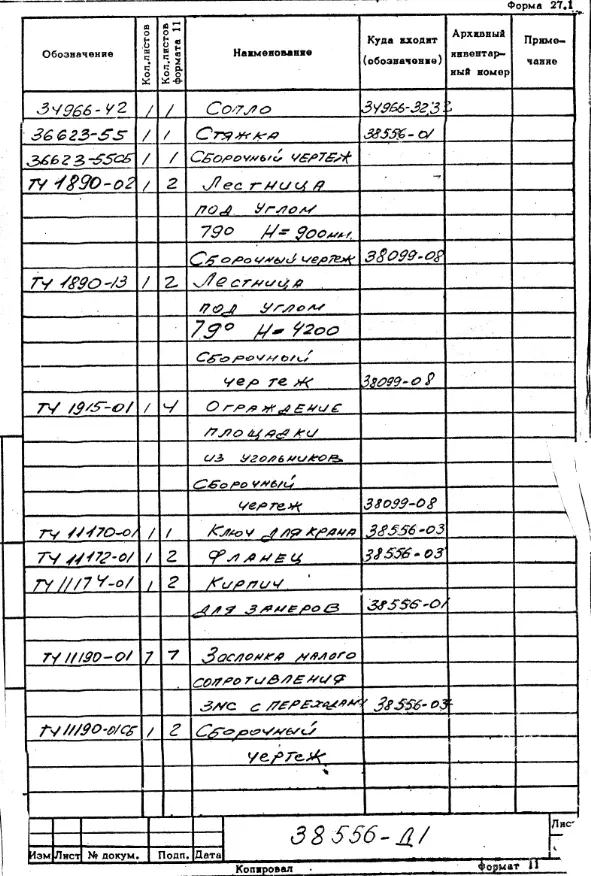 Форма 27.1
Обозначение Кол.листов Кол.листов формата 11 Наименование Куда входит (обозначение) Архивный инвентарный номер Примечание
34966-42 1 1 Сопло 34966-323
36623-55 1 1 Стяжка 38556-01
36623-55СБ 1 1 Сборочный чертеж
ТЧ 1890-02 1 2 Лестница
под углом
79° Н=900мм.
Сборочный чертеж 38099-08
ТЧ 1890-13 1 2 Лестница
под углом
79° Н=4200
Сборочный
чертеж 38099-08
ТЧ 1915-01 1 4 Ограждение
площадки
из угольников
Сборочный
чертеж 38099-08
ТЧ 11170-01 1 1 Ключ для крана 38556-03
ТЧ 11172-01 1 2 Фланец 38556-03
ТЧ 11174-01 1 2 Кирпич
для замеров 38556-01
ТЧ 11190-01 7 7 Заслонка малого
сопротивления
ЗМС с переходам 38556-03
ТЧ 11190-01СБ 1 2 Сборочный
чертеж
38556-Д1
Лис
Изм Лист № докум. Подп. Дата
Копировал Формат 11